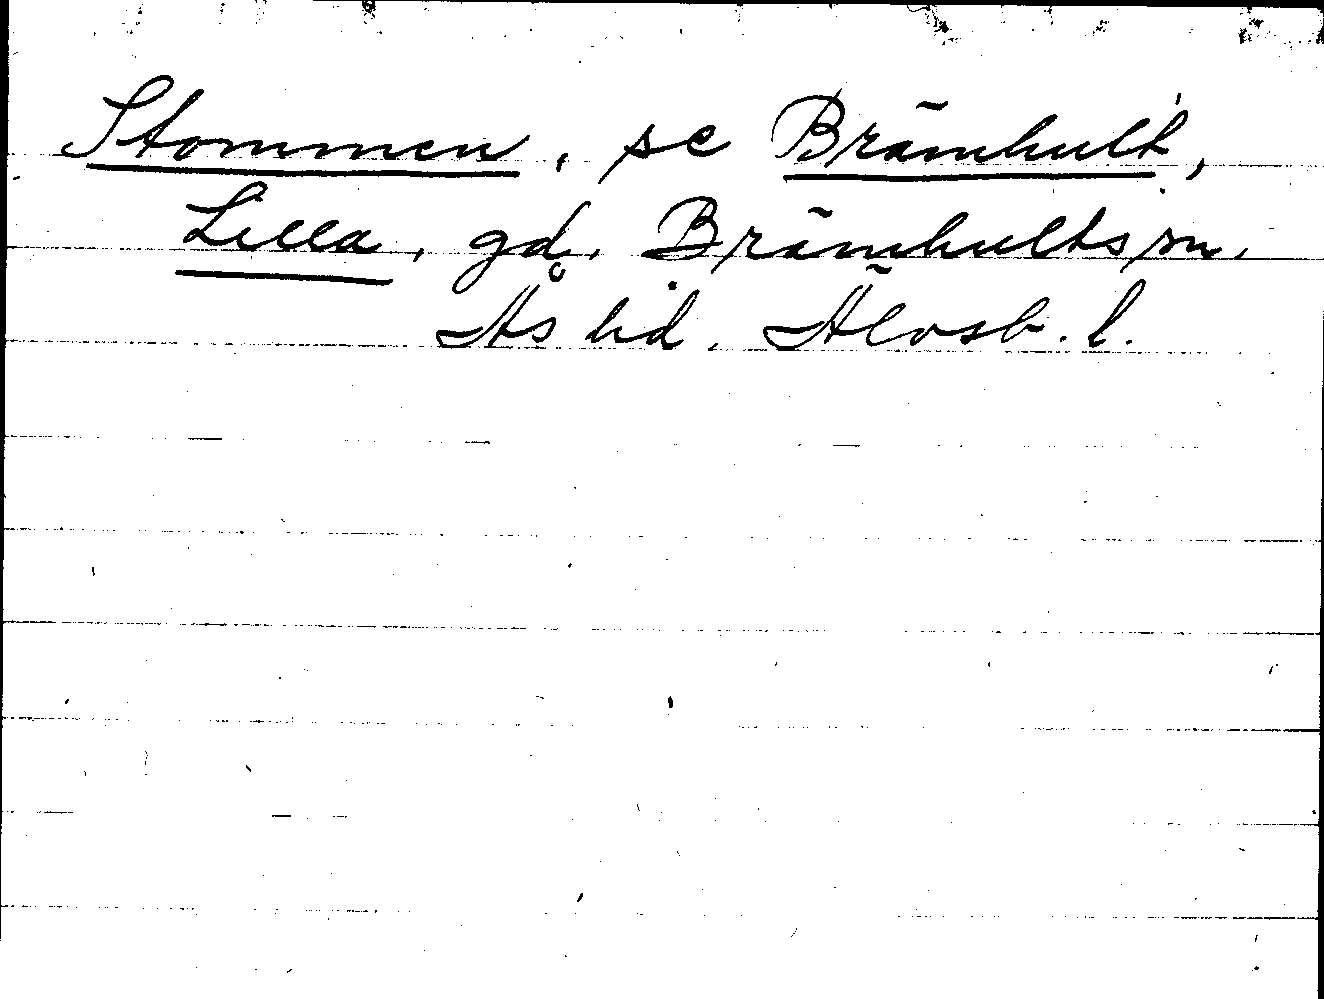 Stommen, se Brämhult,
Lilla, gd, Brämhults sn,
Ås hd, Älvsb. l.